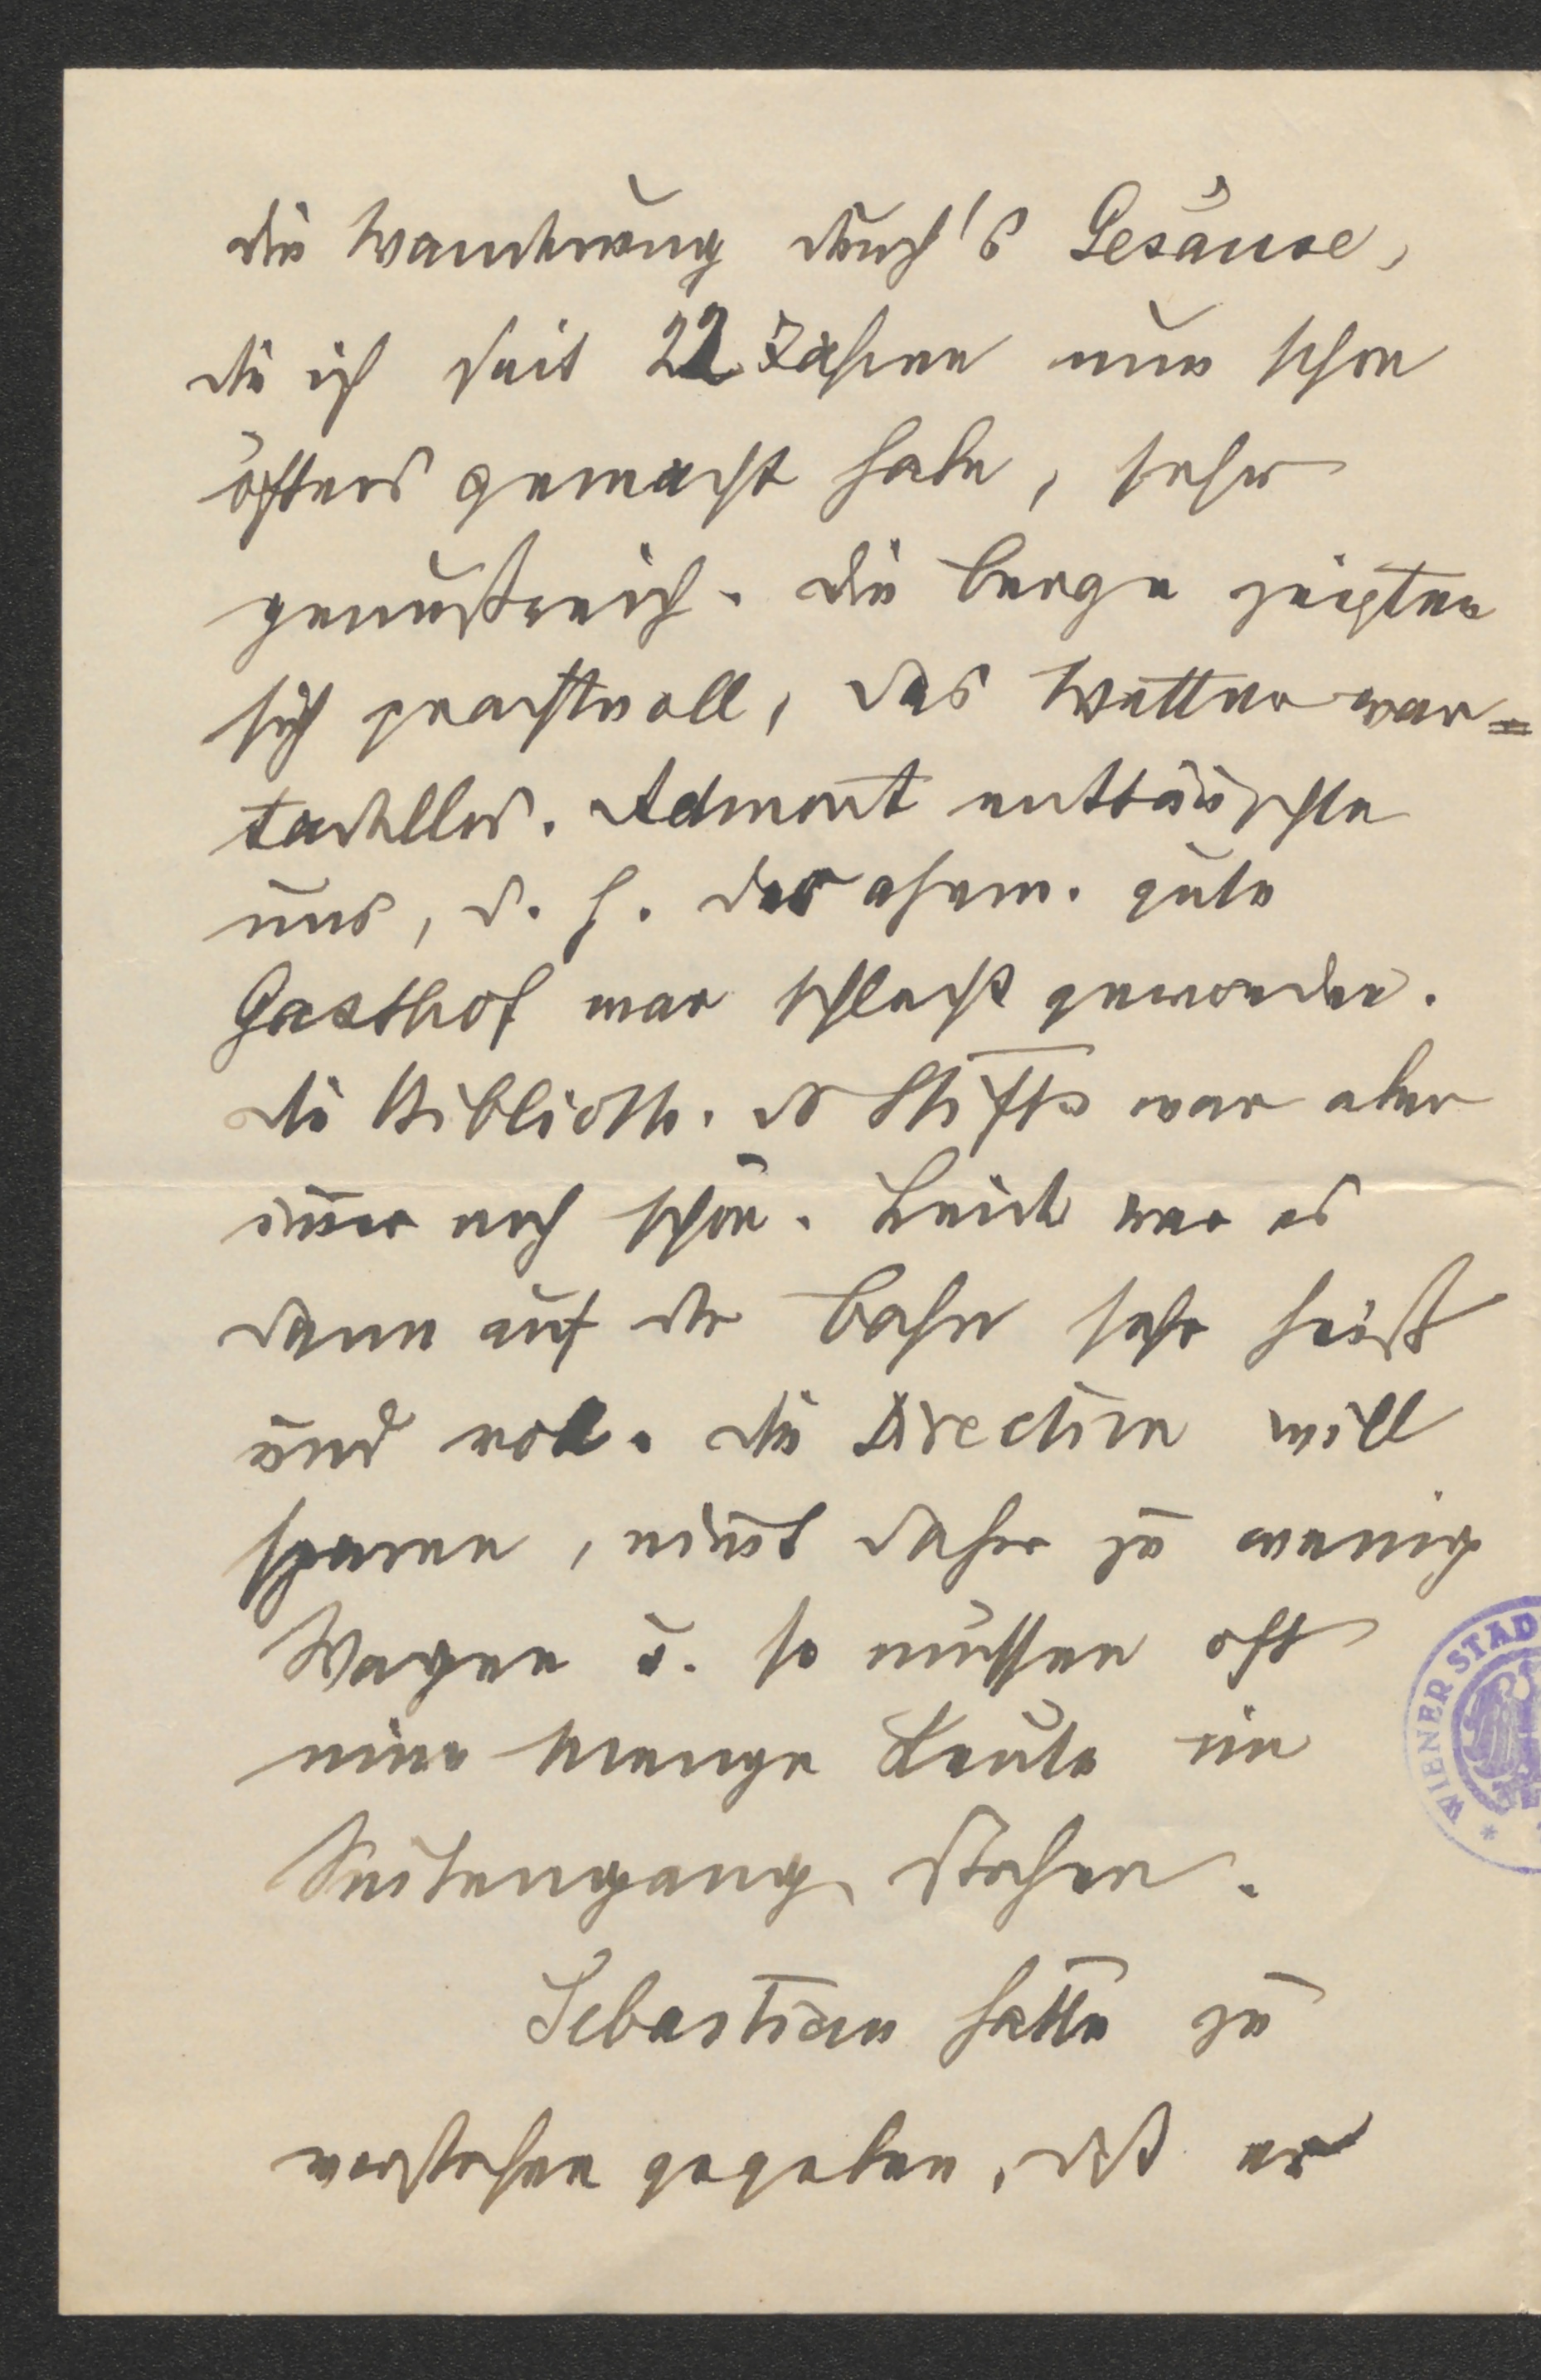 die Wanderung durch's Gesäuse,
die ich seit 22 Jahren nun schon
öfters gemacht habe, sehr
genußreich. Die Berge zeigten
sich prachtvoll, das Wetter war
tadellos. Admont enttäuschte
uns, d. h. der ehem. gute
Gasthof war schlecht geworden.
Die Biblioth. d Stifts war aber
im̄er noch schön. Leider war es
dann auf der Bahn sehr heiß
und voll. Die Direction will
sparen, nim̄t daher zu wenig
Wagen u. so müssen oft
eine Menge Leute im
Seitengang stehen.
Sebastian hatte zu
verstehen gegeben, daß er
WIENER STAD